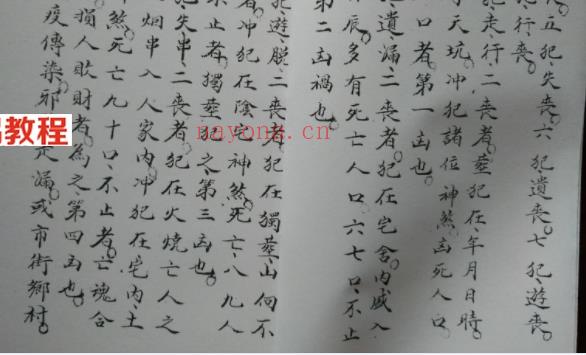 五犯失喪。六、犯遺喪。七犯遊喪。
犯行喪。
犯走行二喪者塟犯在年月日時
天坑冲犯諸位神煞凶死人口
口者第一凶也。
犯遺漏二喪者犯在宅舍内咸入
辰多有死亡人口六七口不止
第二凶禍也。
犯遊脱二喪者犯在獨塟山向不
者冲犯在陰宅神煞死亡八九人
不止者獨塟犯之第三凶也。
犯失串二喪者犯在火燒亡人之
烟串入人家内冲犯在宅内土
神煞死亡九十口不止者亡魂合
損人敗財者為之第四凶也。
疫傳染邪走漏或市街鄉村。
教程
nayong.cn